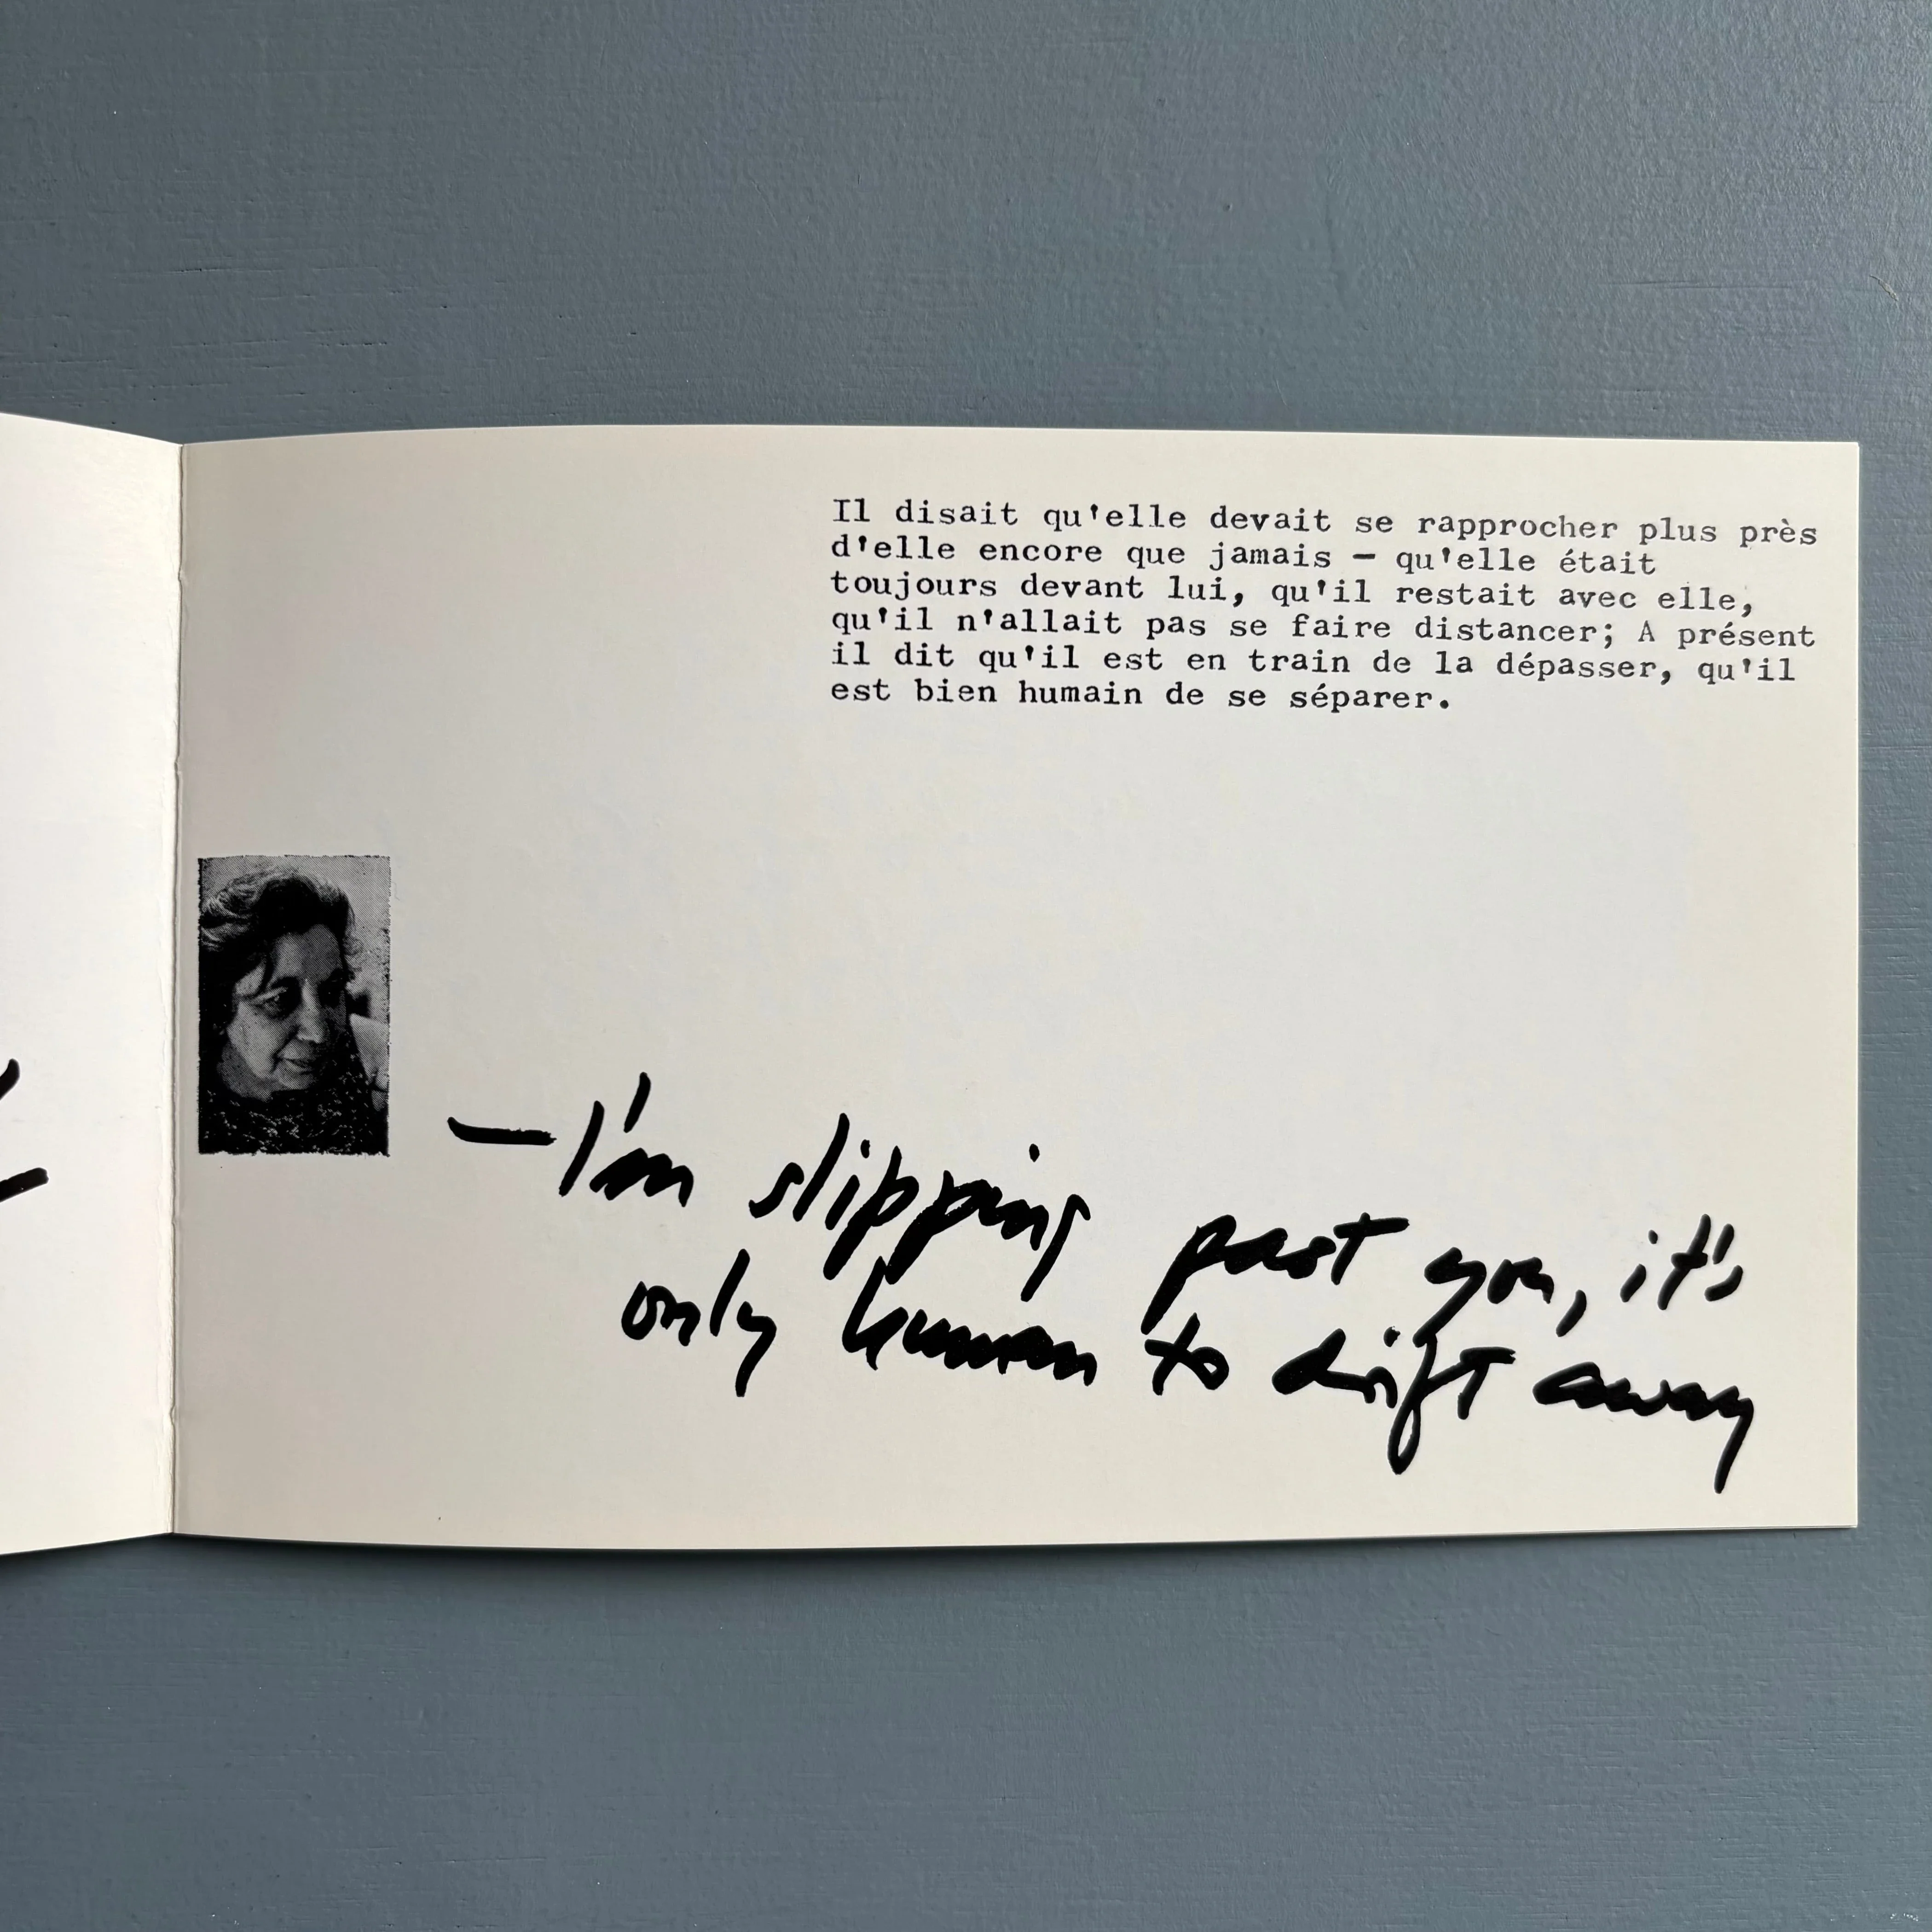 Il disait qu'elle devait se rapprocher plus près
d'elle encore que jamais — qu'elle était
toujours devant lui, qu'il restait avec elle,
qu'il n'allait pas se faire distancer; A présent
il dit qu'il est en train de la dépasser, qu'il
est bien humain de se séparer.
— I'm slipping past you, it's
only human to drift away